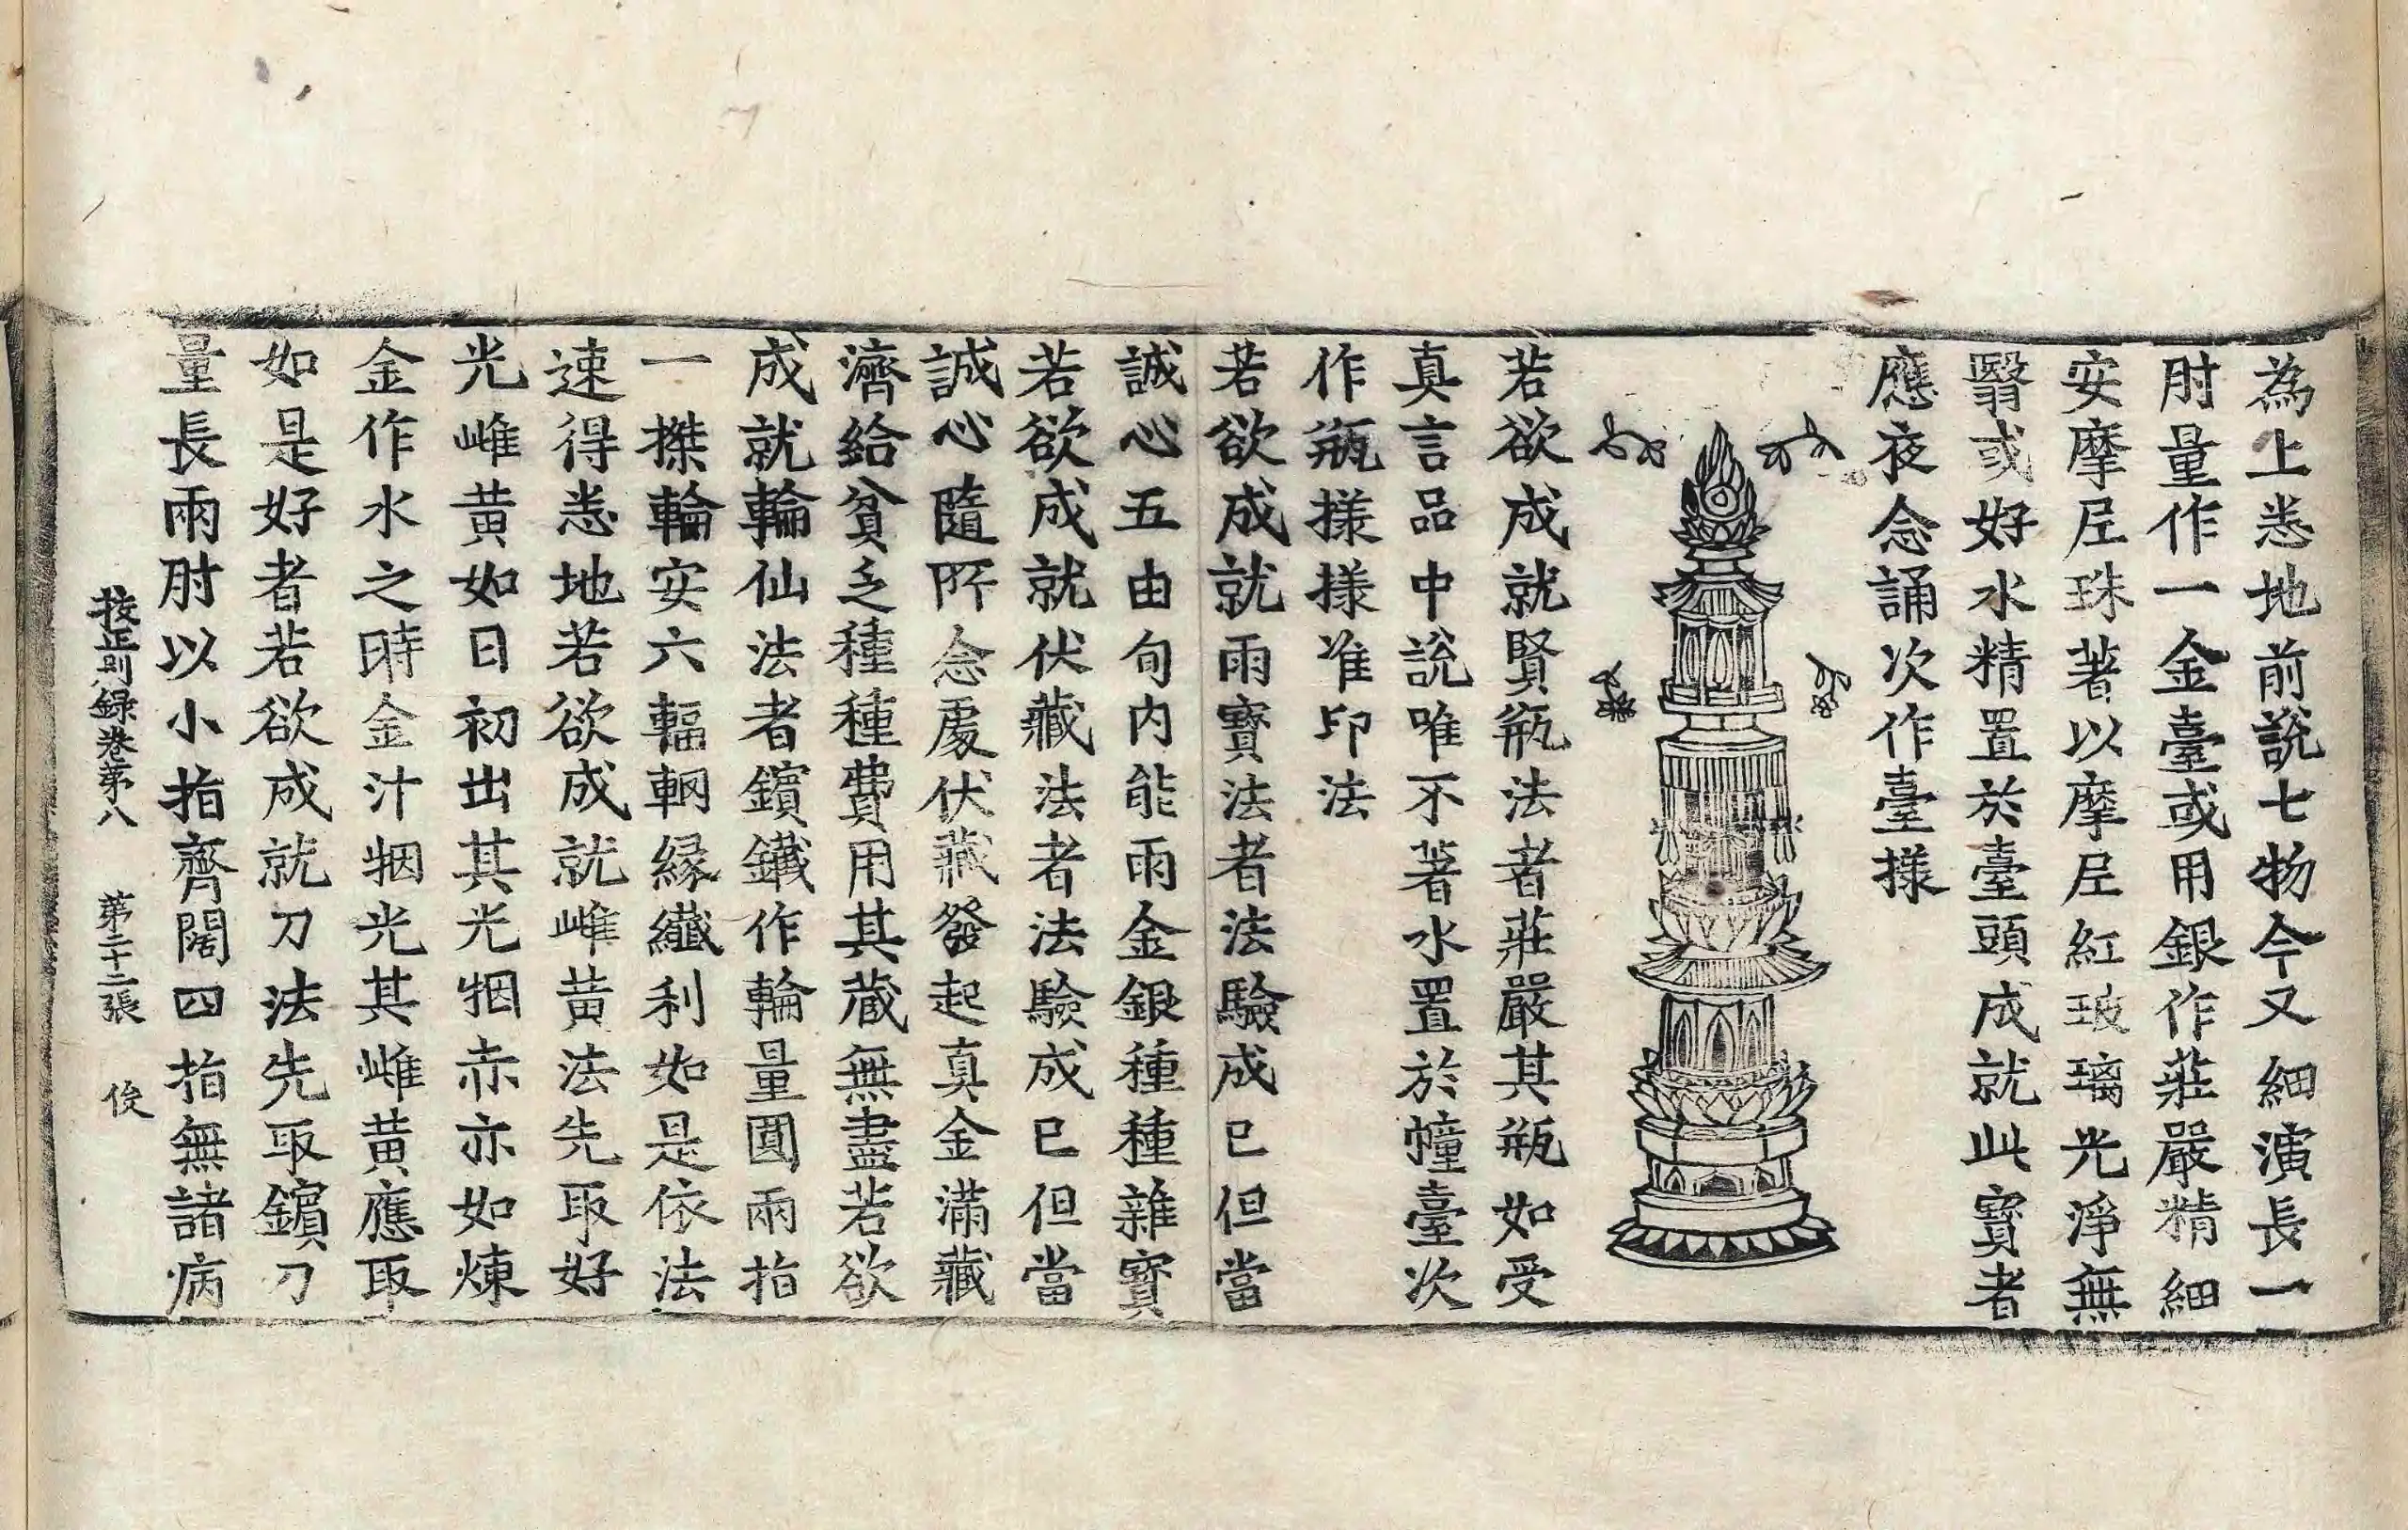 為上悉地前說七物今又細演長一
肘量作一金臺或用銀作莊嚴精細
安摩尼珠著以摩尼紅玻璃光淨無
翳或好水精置於臺頭成就此寶者
應夜念誦次作臺様
若欲成就賢瓶法者莊嚴其瓶如受
真言品中說唯不著水置於幢臺次
作瓶様様准印法
若欲成就雨寶法者法驗成已但當
誠心五由旬内能雨金銀種種雜寶
若欲成就伏藏法者法驗成已但當
誠心隨所念處伏藏發起真金滿藏
濟給貧乏種種費用其蔵無盡若欲
成就輪仙法者鑌鐵作輪量圓兩指
一搩輪安六輻輞縁纖利如是依法
速得悉地若欲成就雌黃法先取好
光雌黃如日初出其光牰赤亦如煉
金作水之時金汁牰光其雌黃應取
如是好者若欲成就刀法先取鑌刀
量長兩肘以小指齊闊四指無諸病
校正別録卷第八 第二十二張 俊